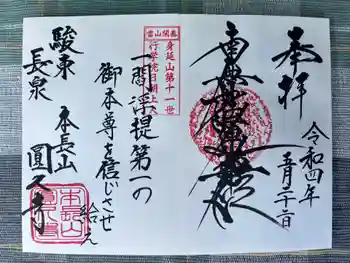 奉拝
令和四年
五月二十二日
南無妙法蓮華経
一閻浮提第一の
御本尊を信じさせ
給え
當山開基
身延山第十一世
行学院日朝上人
駿東
長泉
本長山
圓久寺